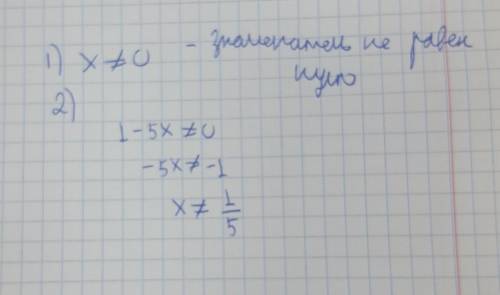 1) x ≠ 0 - знаменатель не равен
нулю
2)
1 - 5x ≠ 0
-5x ≠ -1
x ≠ 1/5